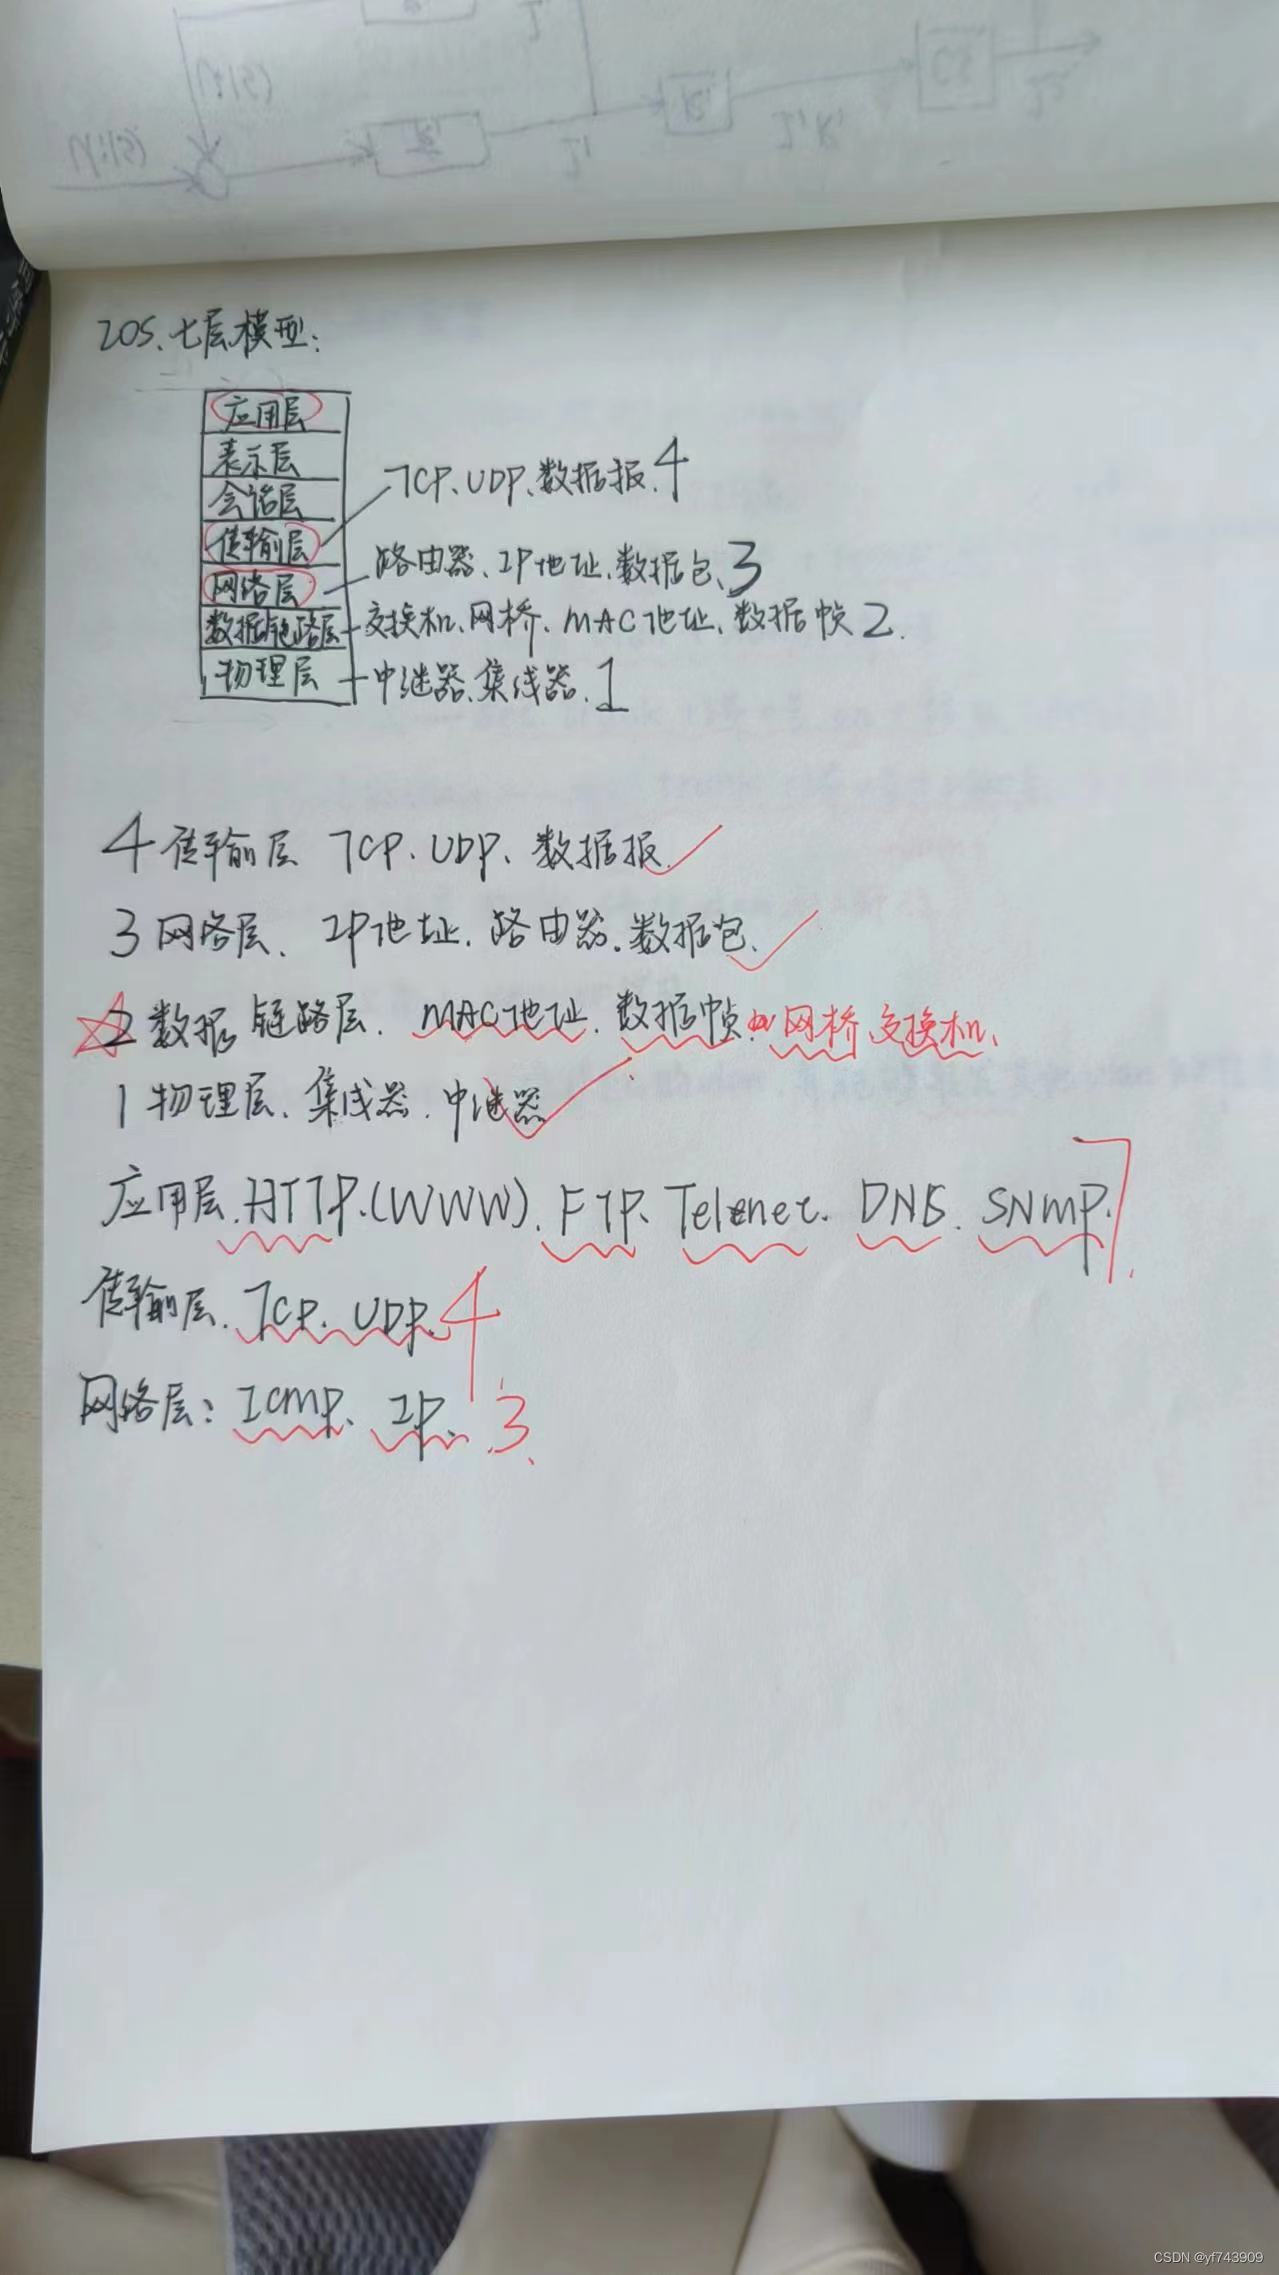 IOS、七层模型:
应用层
表示层
会话层
传输层
网络层
数据链路层
物理层
TCP、UDP、数据报、4
路由器、IP地址、数据包、3
交换机、网桥、MAC地址、数据帧2.
中继器、集线器、1
4 传输层 TCP、UDP、数据报、
3 网络层、IP地址、路由器、数据包、
2 数据链路层、MAC地址、数据帧、网桥、交换机、
1 物理层、集线器、中继器
应用层、HTTP、(WWW)、FTP、Telenet、DNS、SNMP、7.
传输层、TCP、UDP、4
网络层: ICMP、IP、3、
CSDN @yf743909